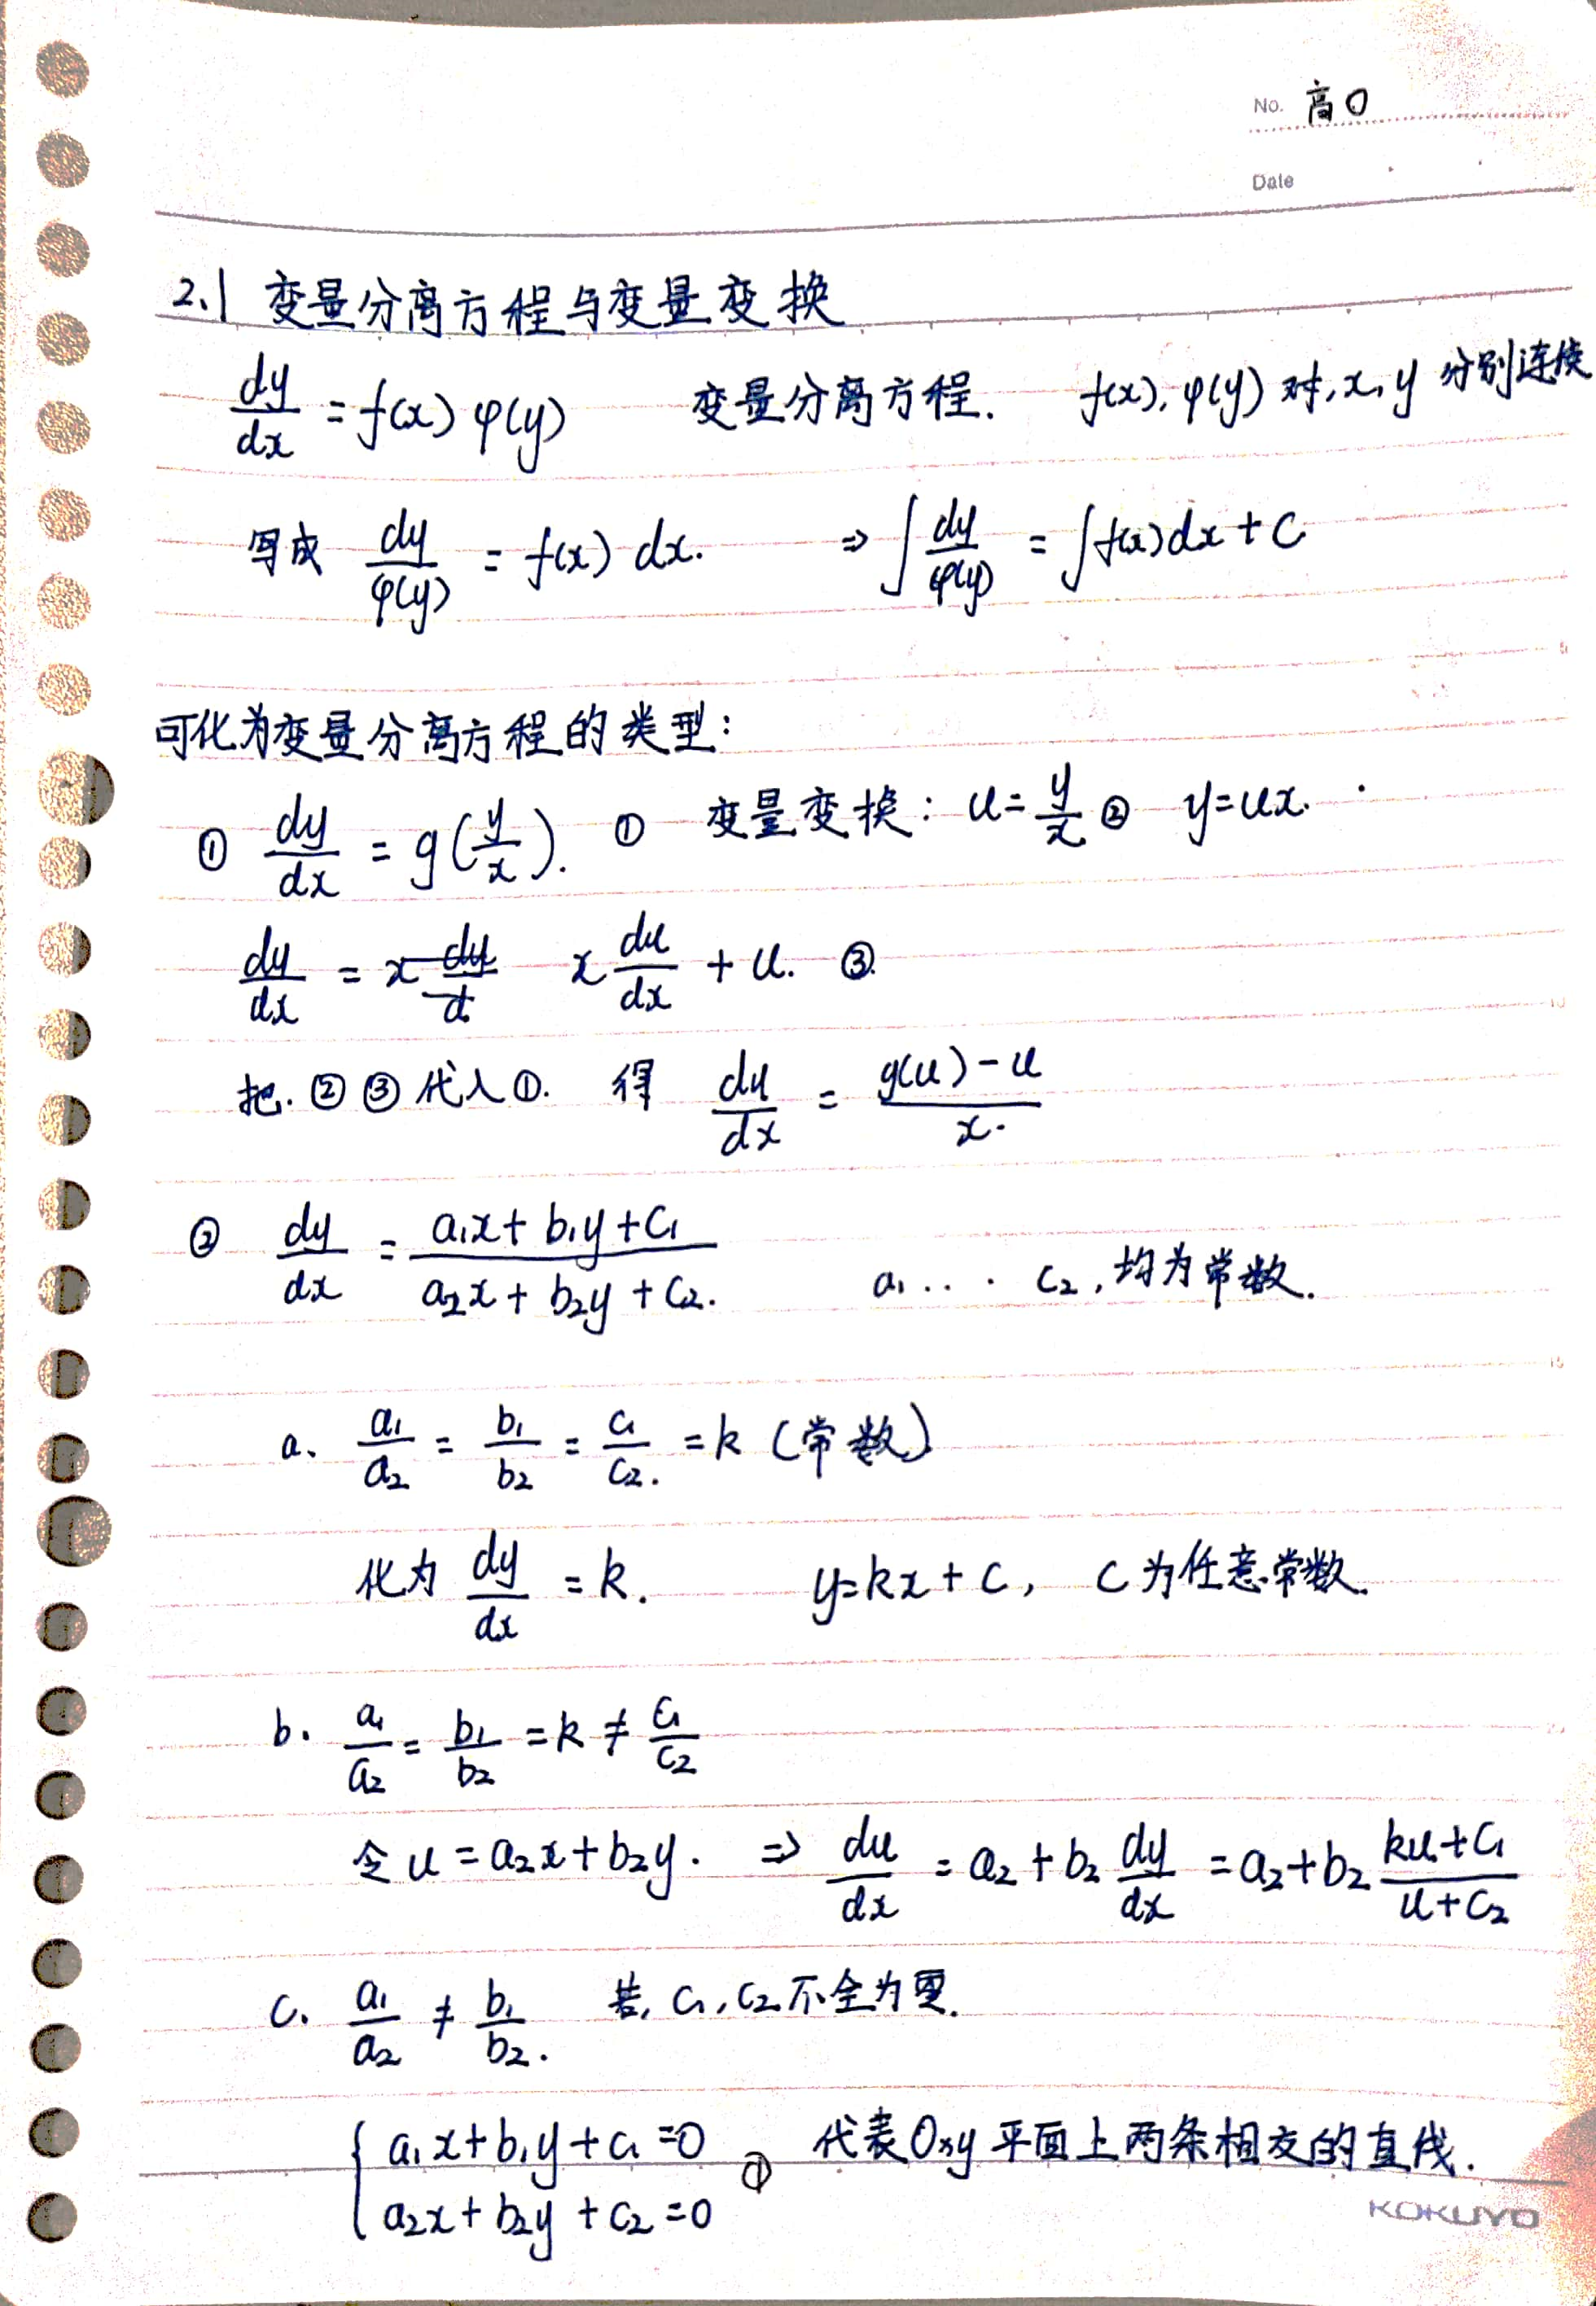 No. 高〇
Date
2.1 变量分离方程与变量变换
dy/dx = f(x) φ(y) 变量分离方程. f(x), φ(y) 对, x, y 分别连续
写成 dy/φ(y) = f(x) dx. ⇒ ∫ dy/φ(y) = ∫f(x)dx + C
可化为变量分离方程的类型:
① dy/dx = g(y/x). ① 变量变换: u = y/x ② y=ux.
dy/dx = x du/dx + u. ③
把. ② ③ 代入①. 得 du/dx = (g(u) - u)/x.
② dy/dx = (a₁x + b₁y + C₁)/(a₂x + b₂y + C₂). a₁ ... C₂, 均为常数.
a. a₁/a₂ = b₁/b₂ = c₁/c₂. = k (常数)
化为 dy/dx = k. y=kx + C, C为任意常数.
b. a₁/a₂ = b₁/b₂ = k ≠ c₁/c₂
令 u = a₂x + b₂y. ⇒ du/dx = a₂ + b₂ dy/dx = a₂ + b₂ (ku + c₁)/(u + c₂)
c. a₁/a₂ ≠ b₁/b₂. 若, c₁, c₂ 不全为零.
{ a₁x + b₁y + c₁ = 0 ① 代表Oxy平面上两条相交的直线.
a₂x + b₂y + c₂ = 0
KOKUYO